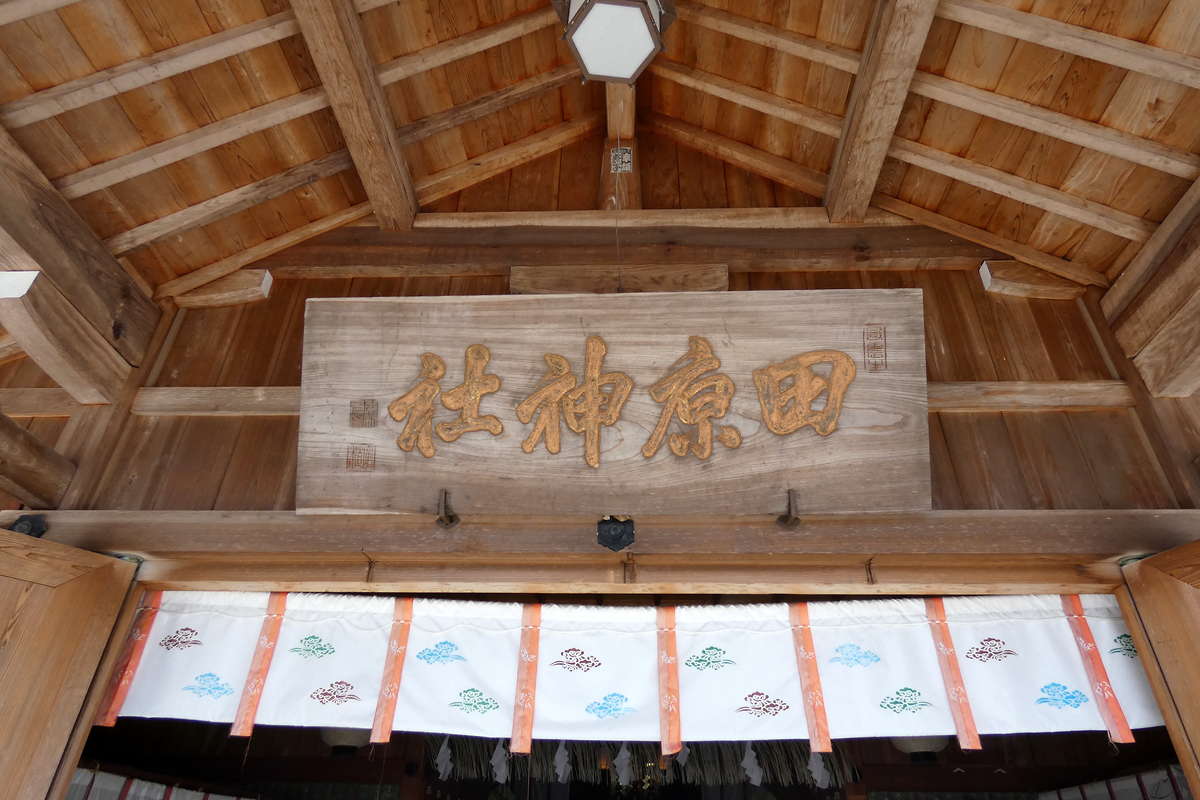 田原神社